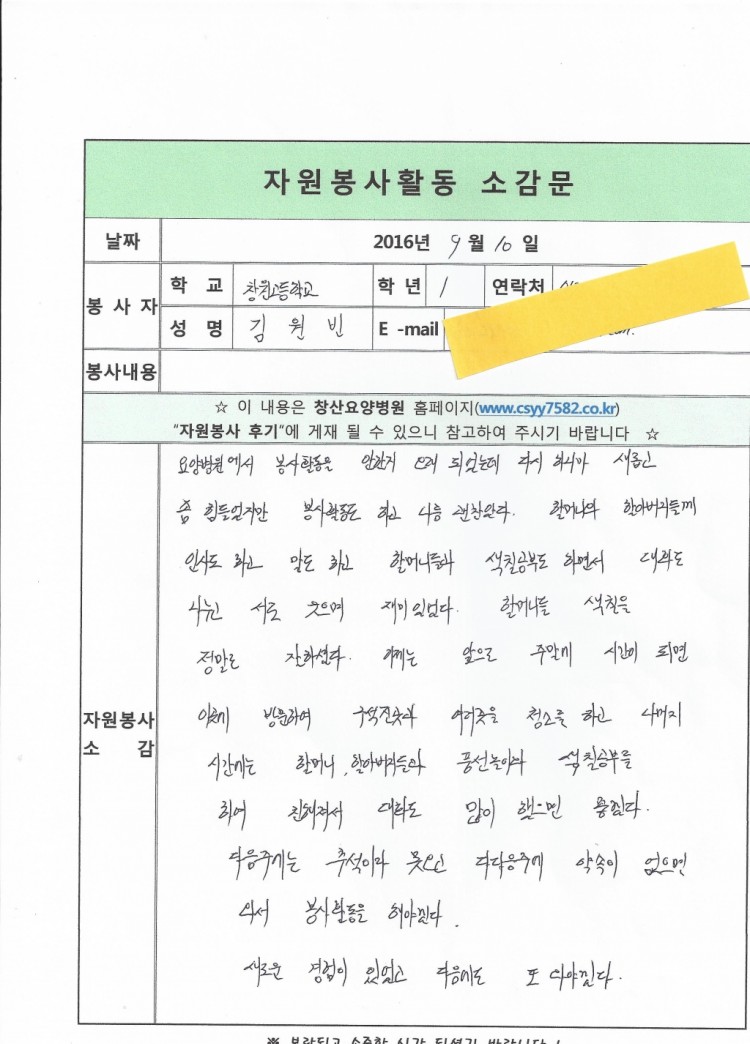 자원봉사활동 소감문
날짜 2016년 9월 10일
봉사자 학교 창원고등학교 학년 1 연락처
성명 김원빈 E-mail
봉사내용
☆ 이 내용은 창산요양병원 홈페이지(www.csyy7582.co.kr)
"자원봉사 후기"에 게재 될 수 있으니 참고하여 주시기 바랍니다 ☆
자원봉사 소감
요양병원에서 봉사활동을 안한지 오래 되었는데 다시 하니까 새롭고
좀 힘들었지만 봉사활동도 하고 나름 괜찮았다. 할머니와 할아버지들께
인사도 하고 말도 하고 할머니들과 색칠공부도 하면서 대화도
나누고 서로 웃으며 재미있었다. 할머니들 색칠을
정말로 잘하셨다. 이제는 앞으로 주말에 시간이 되면
이렇게 방문하여 구석진곳과 여러곳을 청소를 하고 나머지
시간에는 할머니, 할아버지들과 풍선놀이와 색칠공부를
하여 친해져서 대화도 많이 했으면 좋겠다.
다음주에는 추석이라 못오고 다다음주에 약속이 없으면
와서 봉사활동을 해야겠다.
새로운 경험이 있었고 다음에도 또 와야겠다.